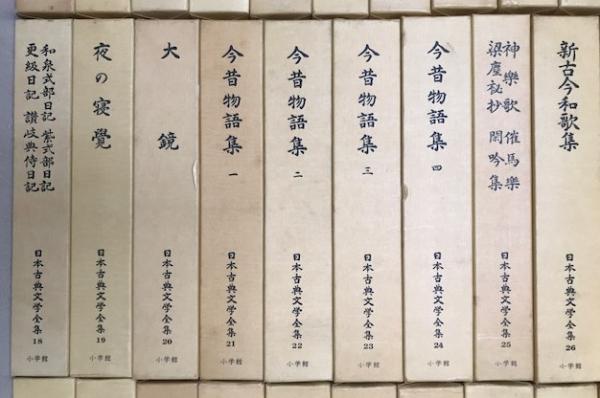 和泉式部日記 紫式部日記
更級日記 讃岐典侍日記
日本古典文学全集
18
小学館
夜の寝覺
日本古典文学全集
19
小学館
大鏡
日本古典文学全集
20
小学館
今昔物語集 一
日本古典文学全集
21
小学館
今昔物語集 二
日本古典文学全集
22
小学館
今昔物語集 三
日本古典文学全集
23
小学館
今昔物語集 四
日本古典文学全集
24
小学館
神樂歌 催馬樂
梁塵祕抄 閑吟集
日本古典文学全集
25
小学館
新古今和歌集
日本古典文学全集
26
小学館